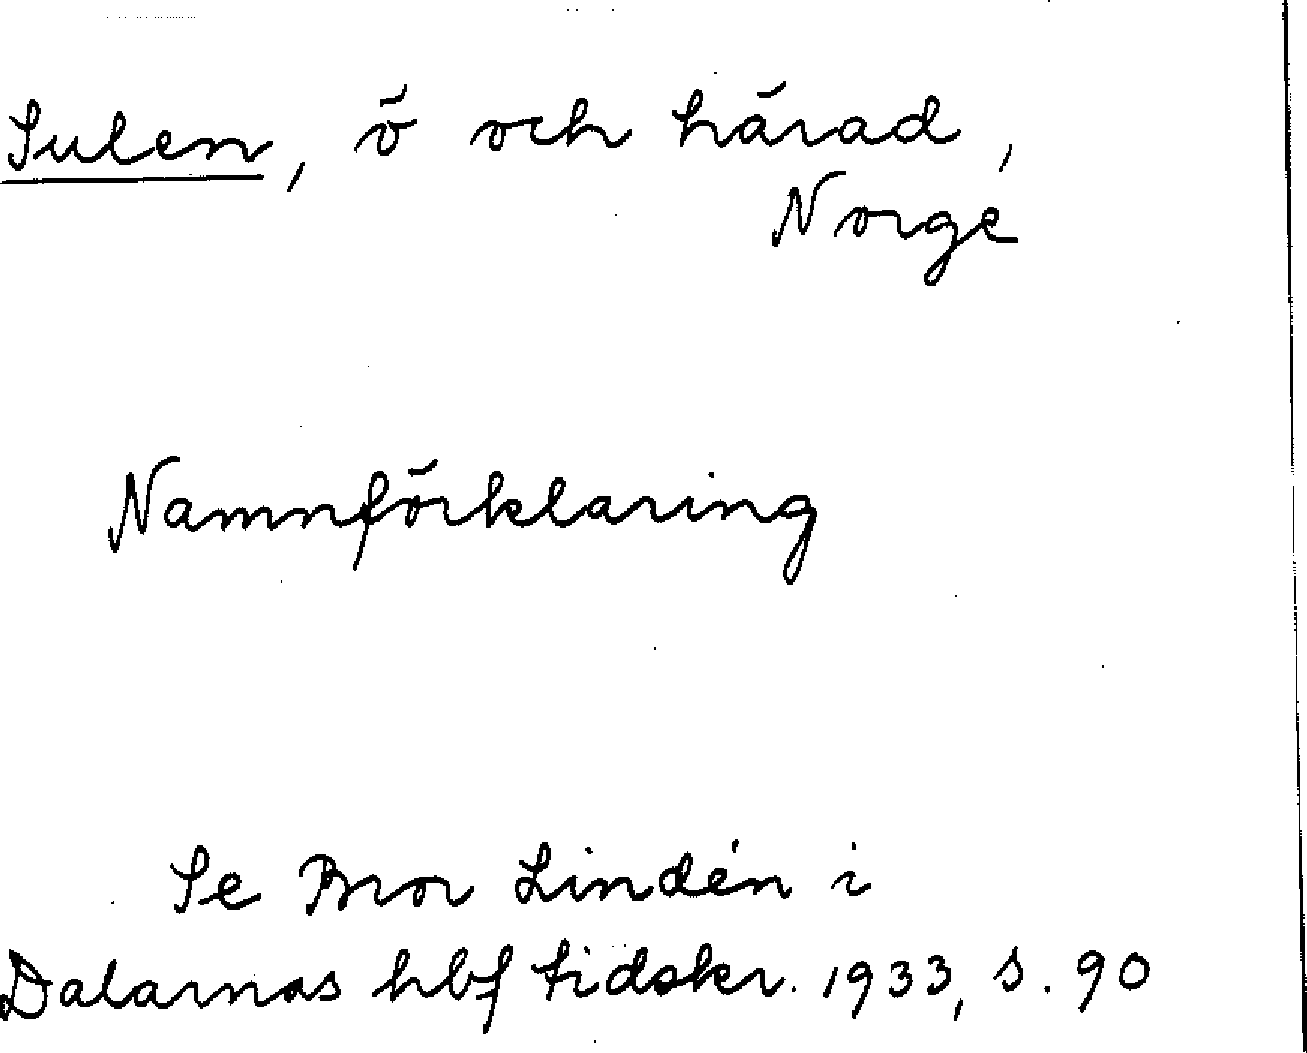 Sulen, ö och härad,
Norge
Namnförklaring
Se Bror Lindén i
Dalarnas hbf tidskr. 1933, s. 90